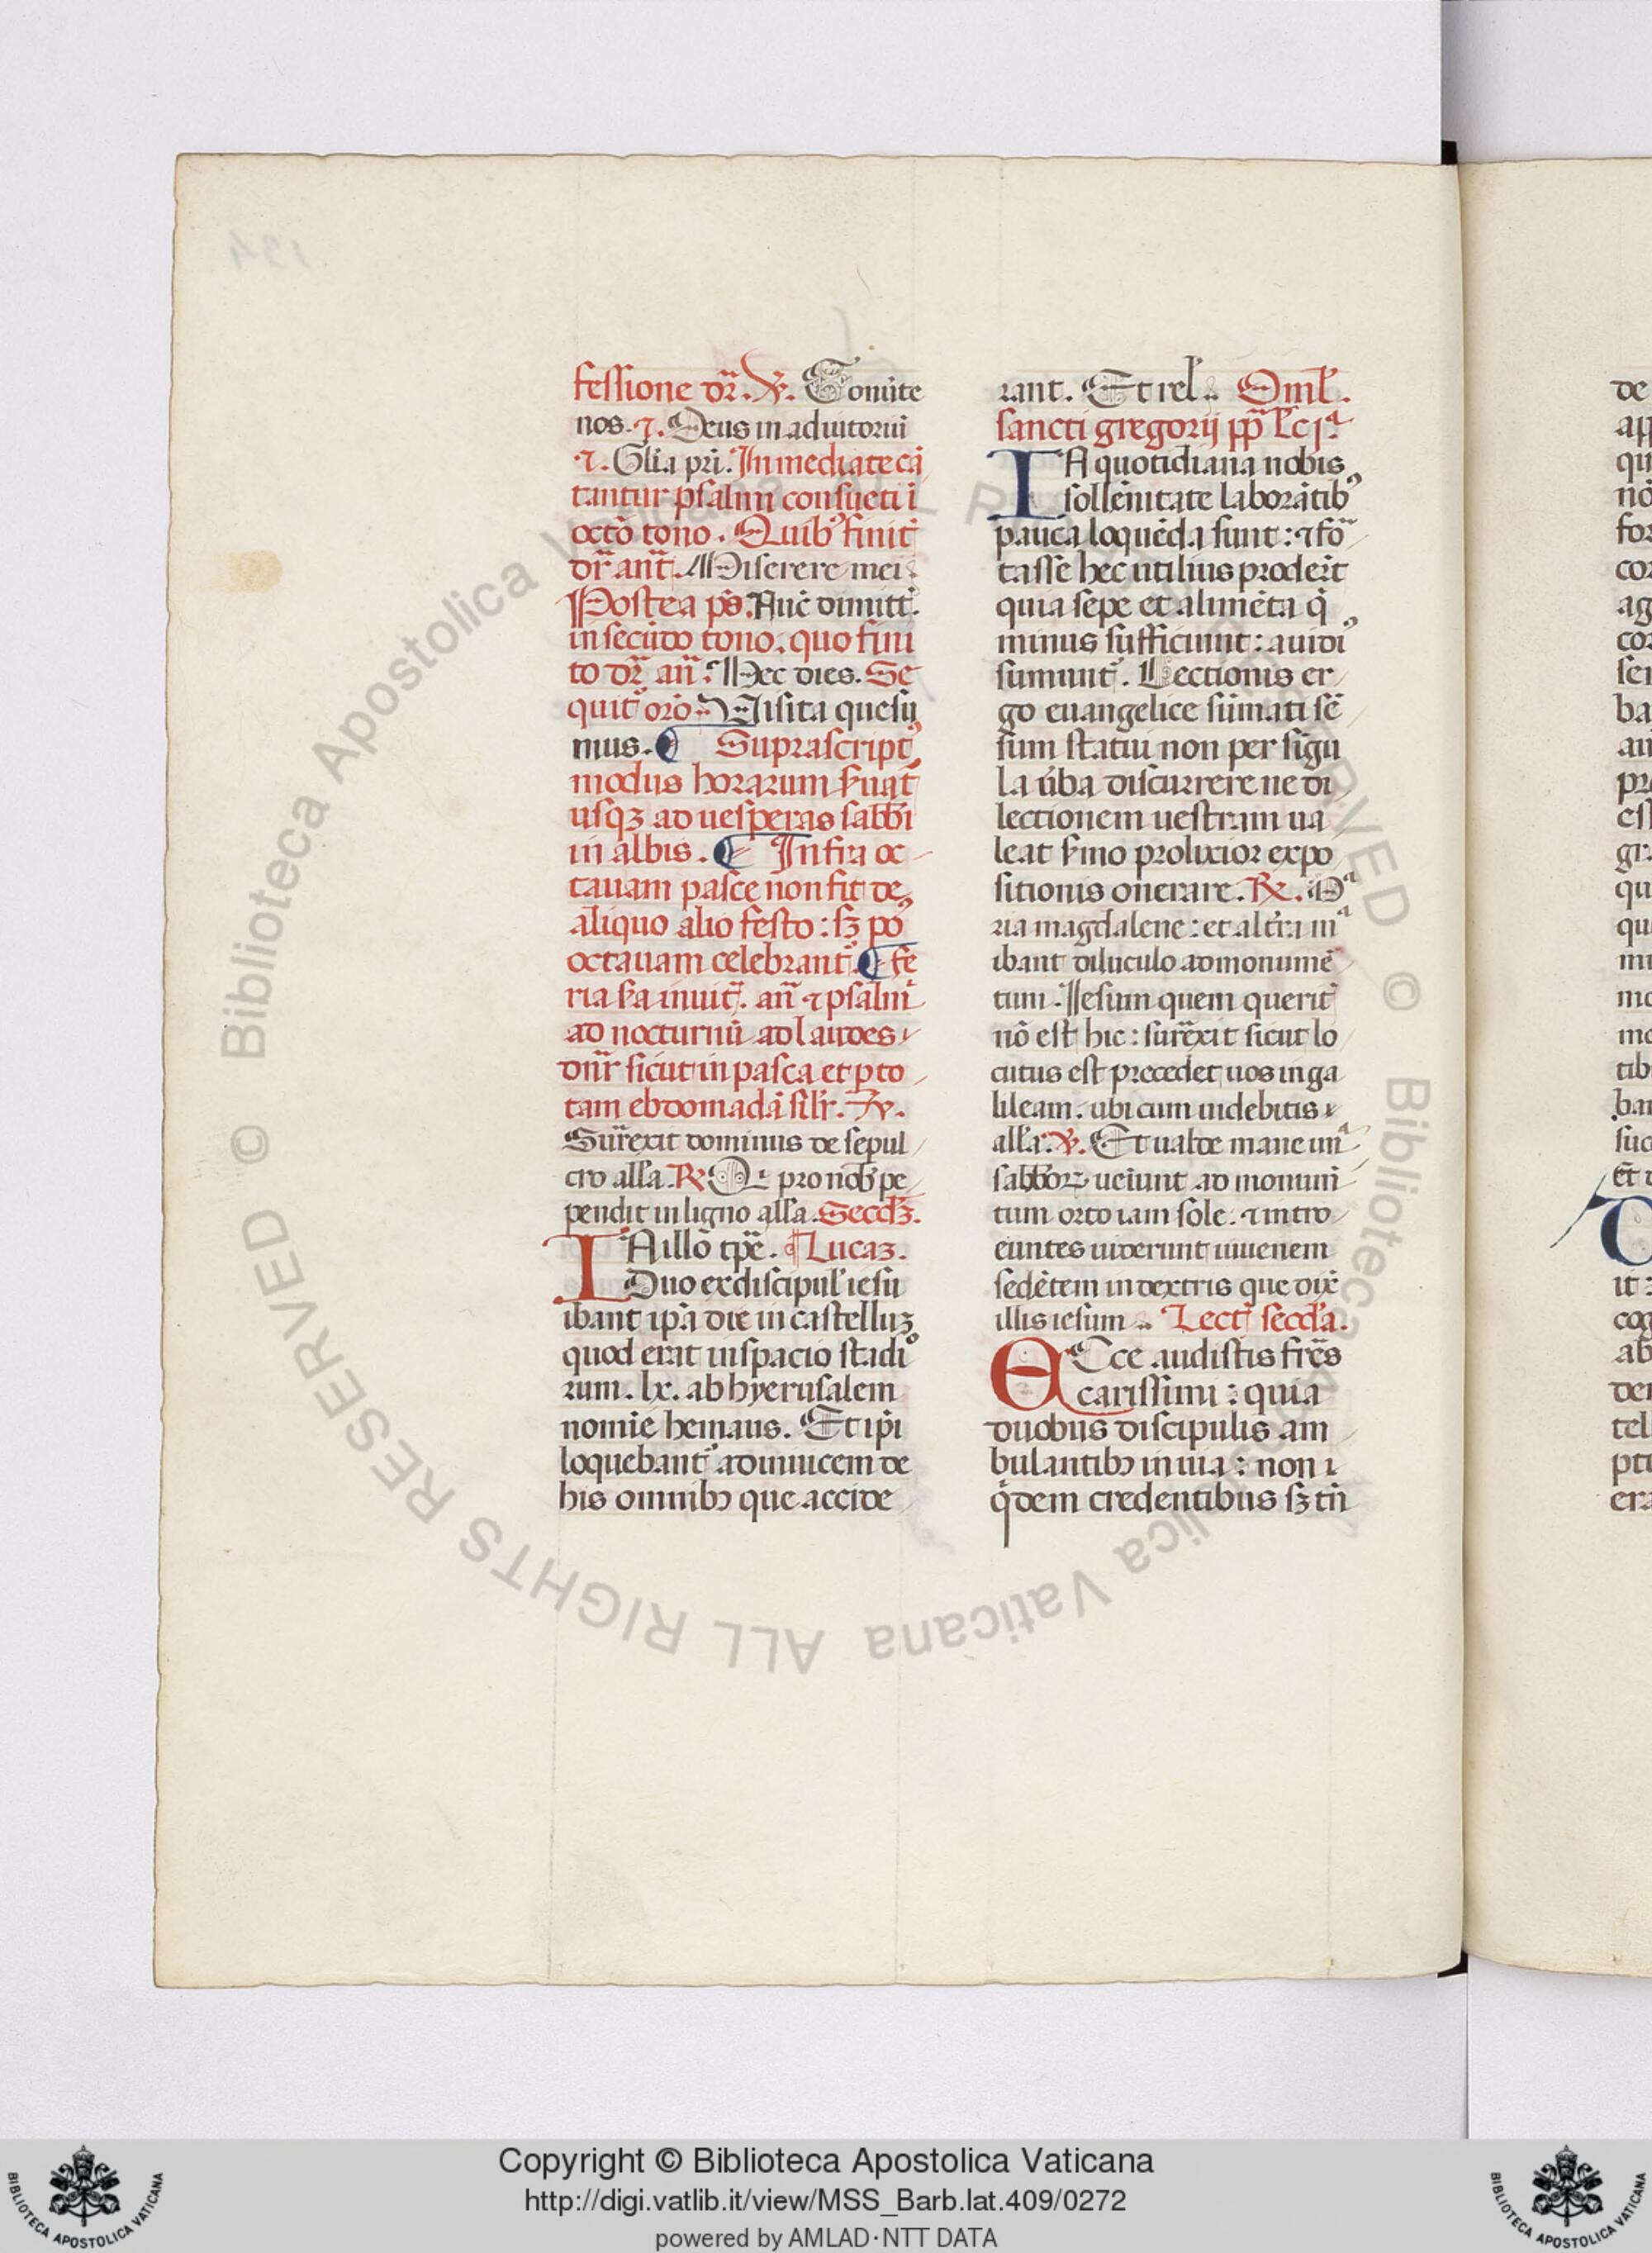 fessione dr̄. V. Conuite
nos. ⁊. Deus in adiutoriū
⁊. Glia pri. Inmediate cā
tantur psalmi consueti ī
octō tono. Quibꝰ finit᷑
dr̄ ant̄. Miserere mei.
Postea ps̄. Nūc dimitt̄.
in secūdo tono. quo fini
to dr̄ an̄. Hec dies. Se
quit᷑ orō Visita quesu
mus. ¶ Suprascriptꝰ
modus horarum ẜuat᷑
usqꝫ ad uesperas sabbi
in albis. ¶ Infra oc
tauam pasce non fit de
aliquo alio festo: sꝫ pꝰ
octauam celebrant᷑. ¶ fe
ria ẜa inuit̄. an̄ ⁊ psalmi
ad nocturnū ad laudes ⁊
dnr̄ sicut in pasca et ꝑ to
tam ebdomadā silr̄. V.
Surrexit dominus de sepul
cro alla. R Q' pro nob̄ pe
pendit in ligno alla. Secdꝫ.
IN illo tpē. Lucaꝫ.
Duo ex discipul' iesu
ibant ipā die in castelluꝫ
quod erat in spacio stadiꝰ
rum. lx. ab hyerusalem
nomīe hemaus. Et ipi
loquebant᷑ adinuicem de
his omnibꝫ que accide
rant. Et rel'. Oml'.
sancti gregorij pp̄ Lc̄ jᵃ
IN quotidiana nobis
sollēnitate laborātibꝰ
pauca loquēda sunt: ⁊ for
tasse hec utilius proderit
quia sepe et alimēta q̄
minus sufficiunt: auidiꝰ
sumunt᷑. Lectionis er
go euangelice sūmati sē
sum statui non per sigu
la ūba discurrere ne di
lectionem uestram ua
leat ẜmo prolixior expo
sitionis onerare. R. Mᵃ
ria magdalene: et altera mᵃ
ibant diluculo ad monumē
tum. Iesum quem querit᷑
nō est hic: surrexit sicut lo
cutus est precedet uos in ga
lileam. ubi eum uidebitis ⁊
alla. V. Et ualde mane unᵃ
sabboꝝ ueiunt ad monum
tum orto iam sole. ⁊ intro
euntes uiderunt iuuenem
sedētem in dextris que dix̄
illis iesum Lect᷑ secda.
ECce audistis frēs
carissimi: quia
duobus discipulis am
bulantibꝫ in uia: non
q̄dem credentibus sꝫ tn̄
http://digi.vatlib.it/view/MSS_Barb.lat.409/0272
Copyright © Biblioteca Apostolica Vaticana
powered by AMLAD·NTT DATA
© Biblioteca Apostolica Vaticana ALL RIGHTS RESERVED
BIBLIOTECA APOSTOLICA VATICANA
BIBLIOTECA APOSTOLICA VATICANA